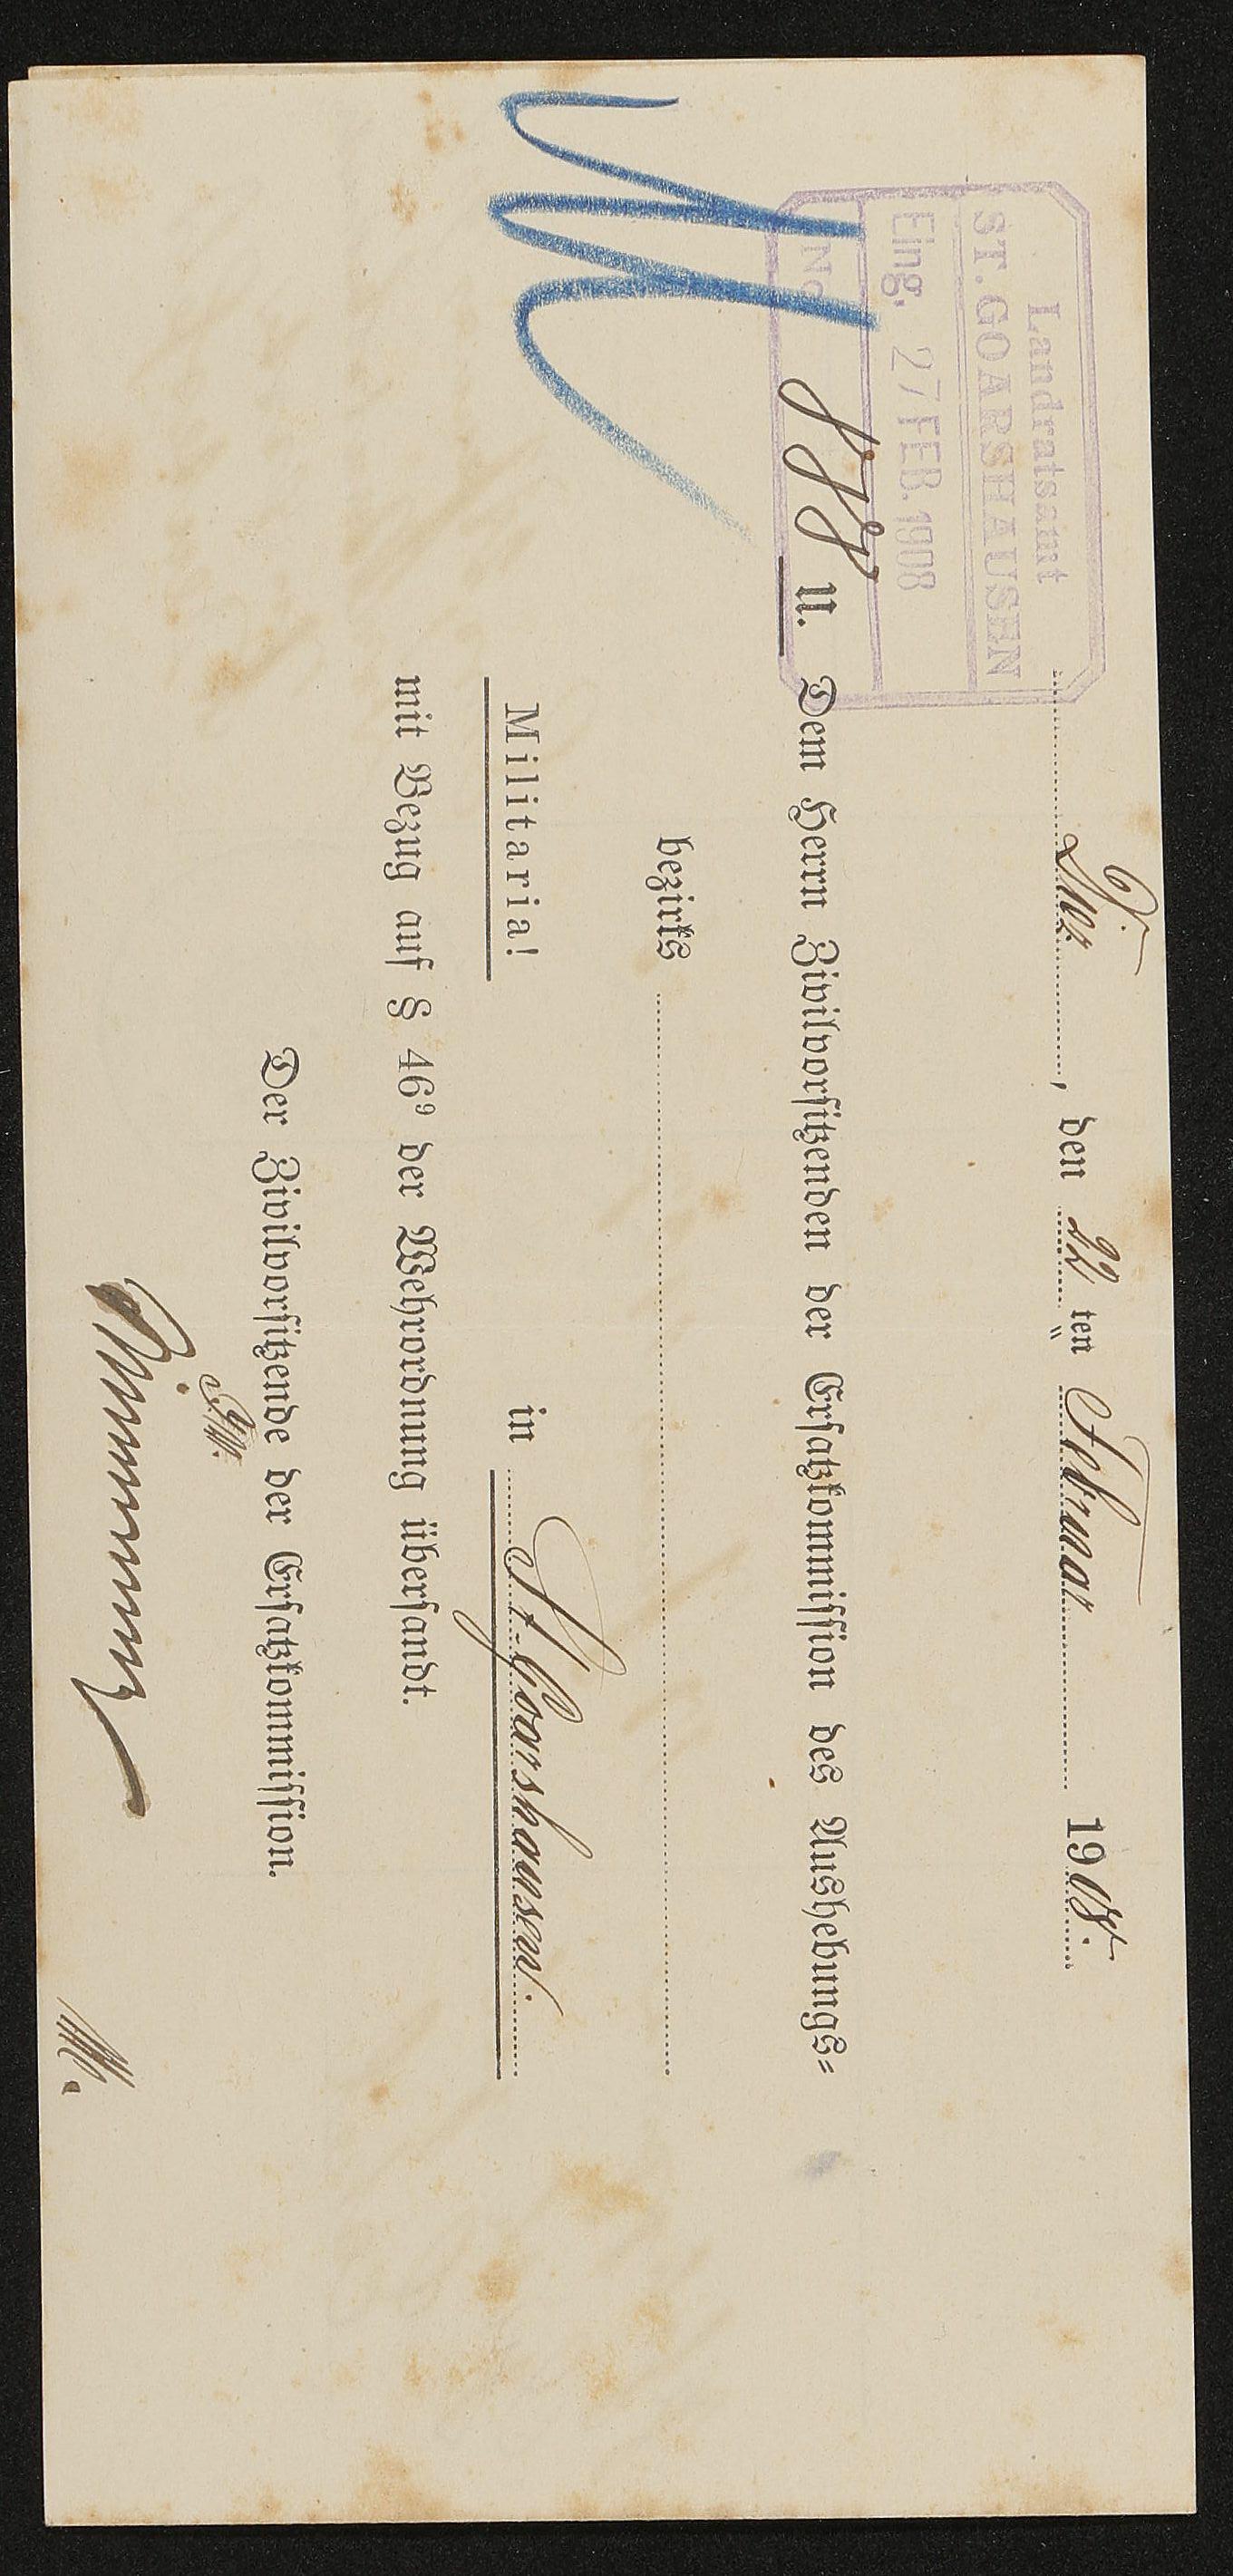 Landratsamt
ST. GOARSHAUSEN
Eing. 27 FEB. 1908
No
Diez, den 22 ten Februar 1908.
u. Dem Herrn Zivilvorsitzenden der Ersatzkommission des Aushebungs-
bezirks
Militaria! in St. Goarshausen.
mit Bezug auf § 46⁹ der Wehrordnung übersandt.
Der Zivilvorsitzende der Ersatzkommission.